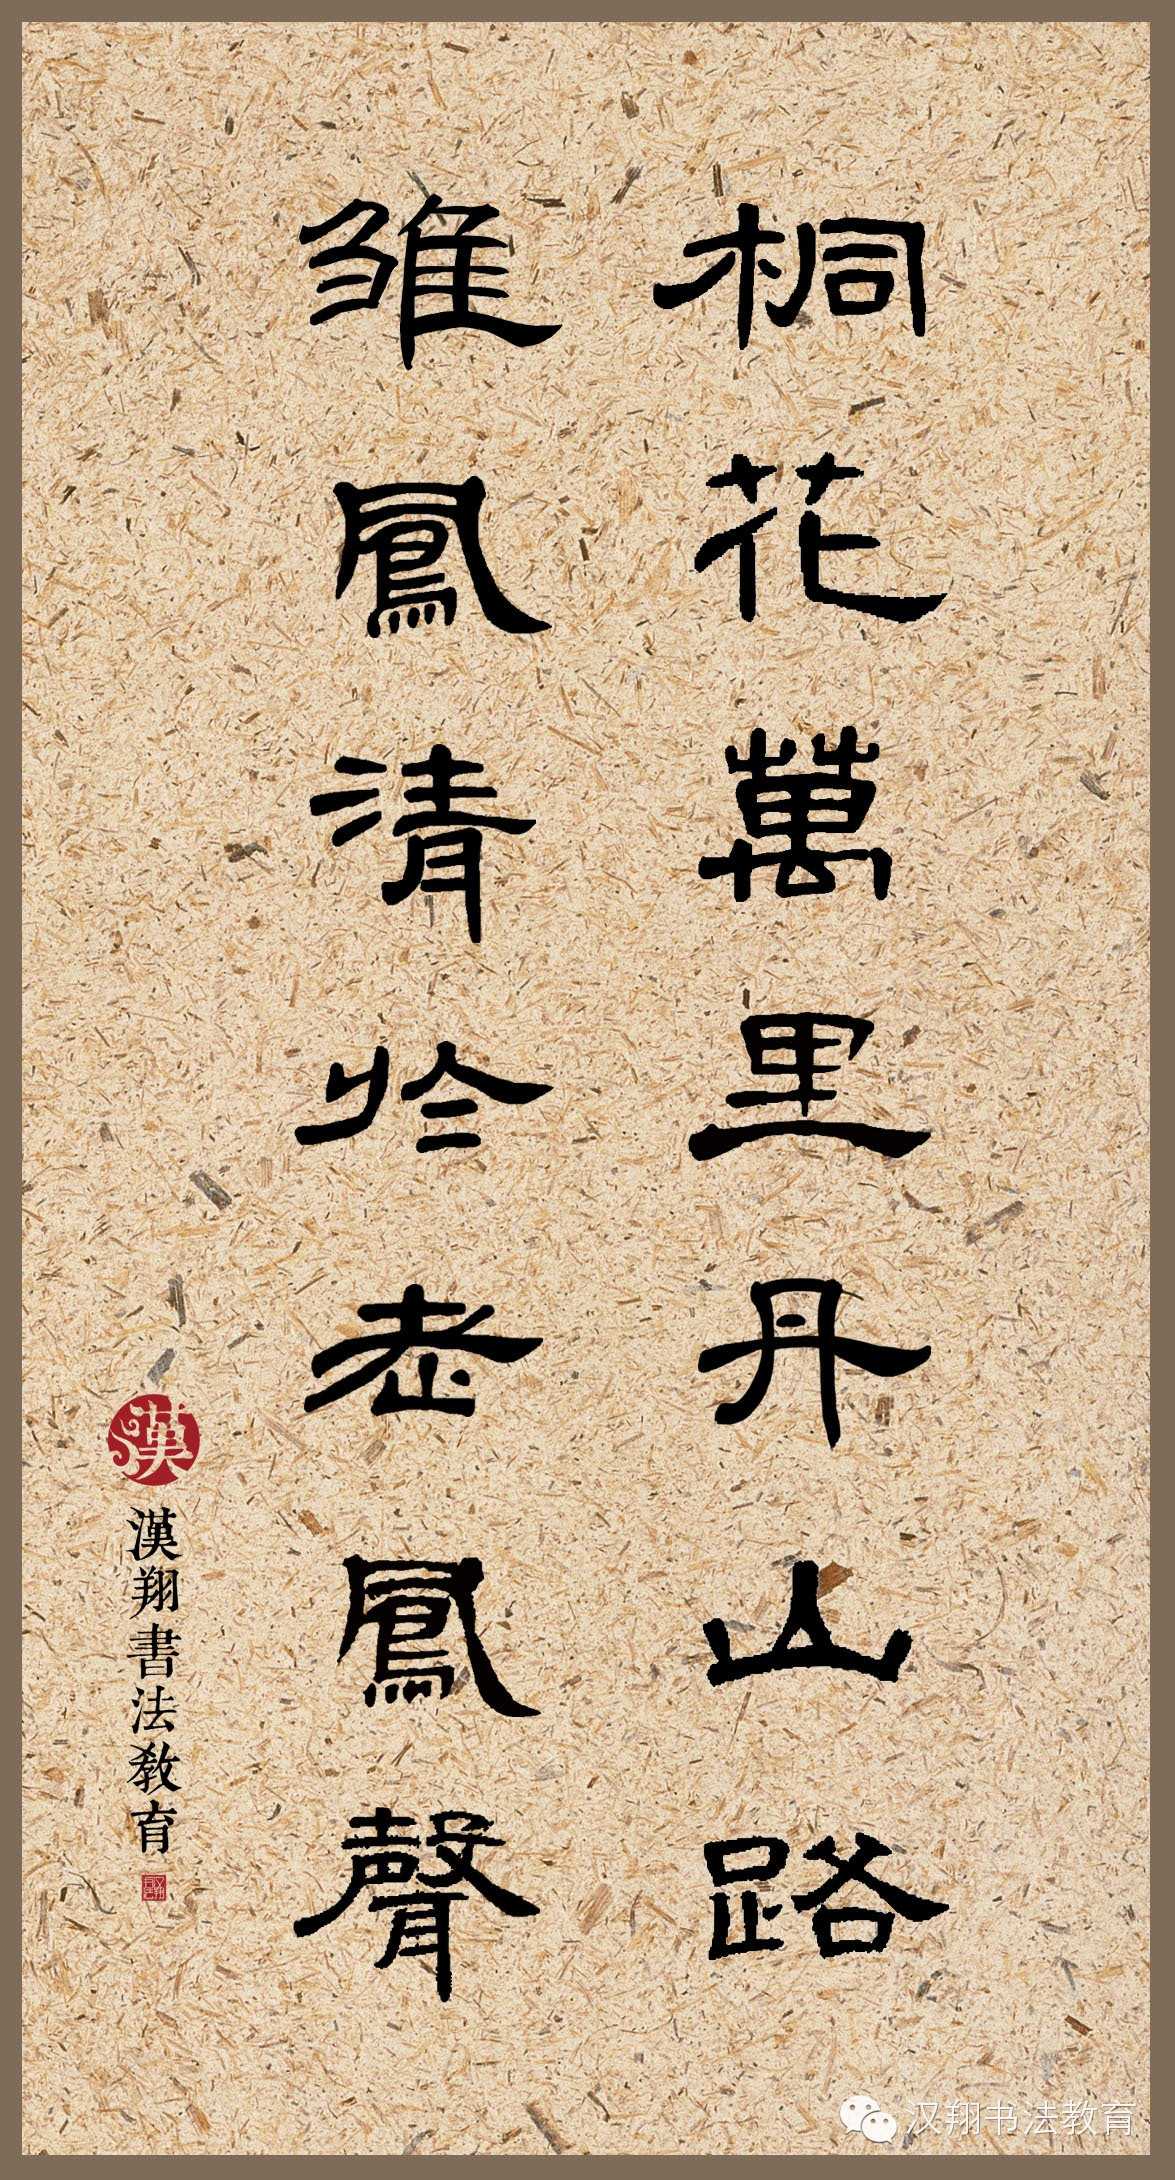 桐花萬里丹山路
雏鳳清於老鳳聲
漢
漢翔書法教育
汉翔书法教育